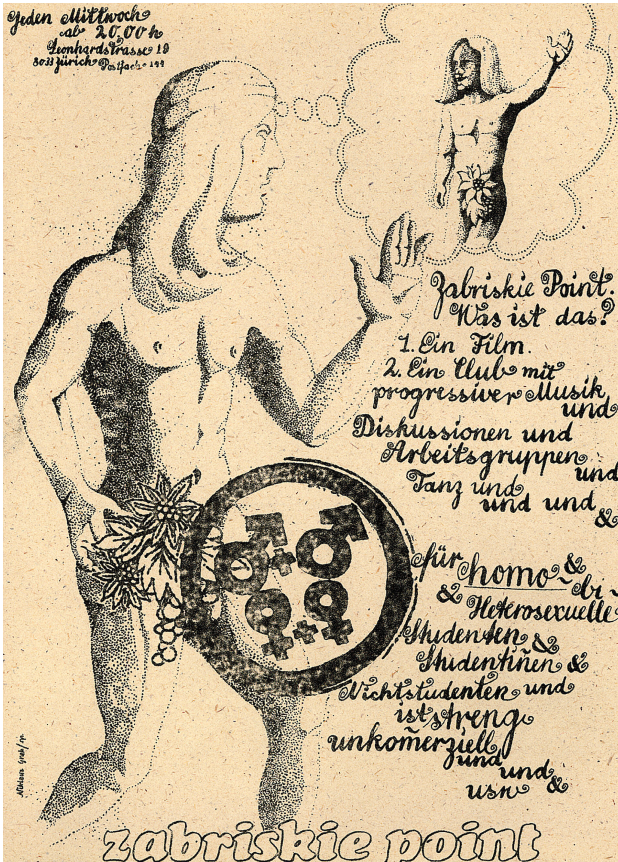 Jeden Mittwoch
ab 20.00h
Leonhardstrasse 19
8033 Zürich Postfach 144
Zabriskie Point.
Was ist das?
1. Ein Film.
2. Ein Club mit
progressiver Musik
und
Diskussionen und
Arbeitsgruppen
und
Tanz und
und und
&
für homo- &
bi-
& Heterosexuelle
Studenten &
Studentiñen &
Nichtstudenten und
ist streng
unkom̄erziell
und
und
usw &
zabriskie point